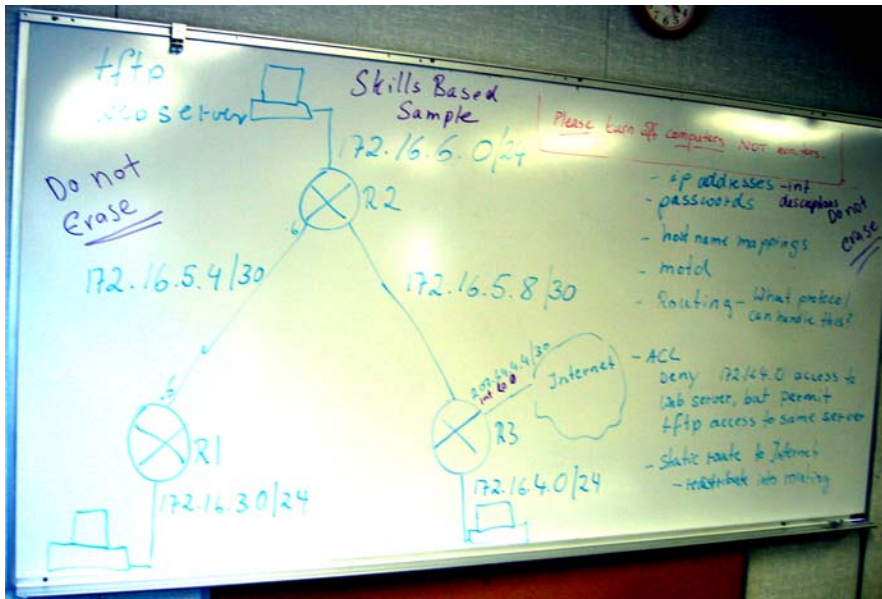 tftp
server
Skills Based
Sample
Please turn off computers NOT monitors.
Do not
Erase
172.16.6.0/24
R2
.6
172.16.5.4/30
172.16.5.8/30
.5
R1
172.16.3.0/24
int lo 0
Internet
R3
172.16.4.0/24
- ip addresses - int
descriptions
- passwords
Do not
erase
- host name mappings
- motd
- Routing - What protocol
can handle this?
- ACL
Deny 172.16.4.0 access to
Web server, but permit
tftp access to same server
- Static route to Internet
- redistribute into routing